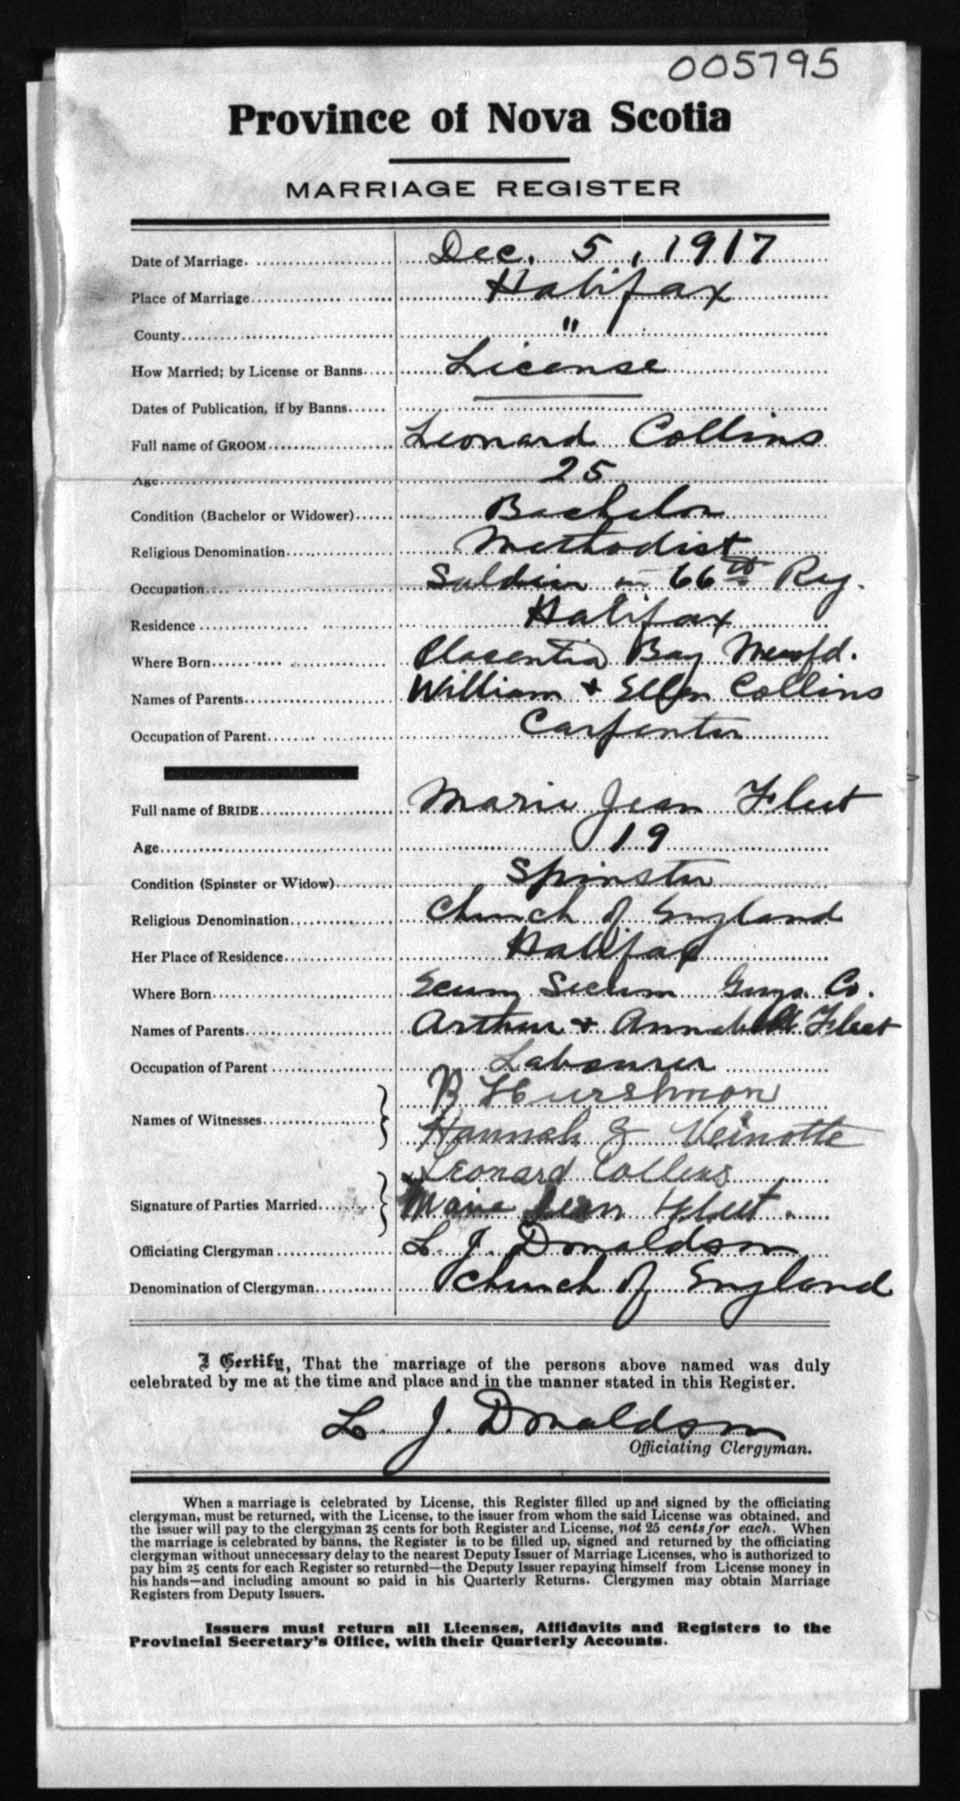 005795
Province of Nova Scotia
MARRIAGE REGISTER
Date of Marriage. Dec. 5, 1917
Place of Marriage Halifax
County "
How Married; by License or Banns License
Dates of Publication, if by Banns
Full name of GROOM Leonard Collins
Age 25
Condition (Bachelor or Widower) Bachelor
Religious Denomination Methodist
Occupation Soldier in 66th Reg.
Residence Halifax
Where Born Placentia Bay Newfd.
Names of Parents William + Ellen Collins
Occupation of Parent Carpenter
Full name of BRIDE Marie Jean Fleet
Age 19
Condition (Spinster or Widow) Spinster
Religious Denomination Church of England
Her Place of Residence Halifax
Where Born Ecum Secum Guys. Co.
Names of Parents Arthur + Annabell Fleet
Occupation of Parent Labourer
Names of Witnesses B Hurshmon
Hannah Veinotte
Leonard Collins
Signature of Parties Married Marie Jean Fleet.
Officiating Clergyman L. J. Donaldson
Denomination of Clergyman Church of England
I Certify, That the marriage of the persons above named was duly
celebrated by me at the time and place and in the manner stated in this Register.
L. J. Donaldson
Officiating Clergyman.
When a marriage is celebrated by License, this Register filled up and signed by the officiating
clergyman, must be returned, with the License, to the issuer from whom the said License was obtained, and
the issuer will pay to the clergyman 25 cents for both Register and License, not 25 cents for each. When
the marriage is celebrated by banns, the Register is to be filled up, signed and returned by the officiating
clergyman without unnecessary delay to the nearest Deputy Issuer of Marriage Licenses, who is authorized to
pay him 25 cents for each Register so returned—the Deputy Issuer repaying himself from License money in
his hands—and including amount so paid in his Quarterly Returns. Clergymen may obtain Marriage
Registers from Deputy Issuers.
Issuers must return all Licenses, Affidavits and Registers to the
Provincial Secretary's Office, with their Quarterly Accounts.